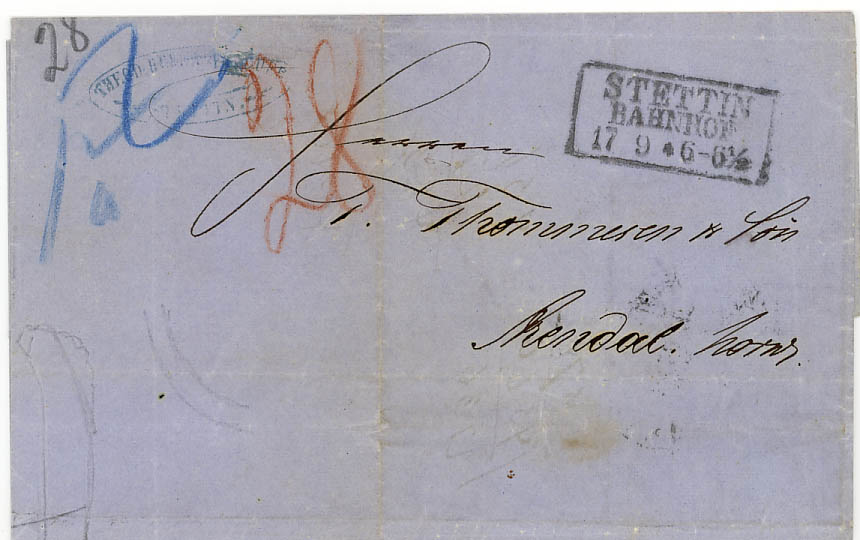 28
28
STETTIN
BAHNHOF
17 9 * 6-6½
Herren
T. Thommesen & Sön
Arendal. Norw.